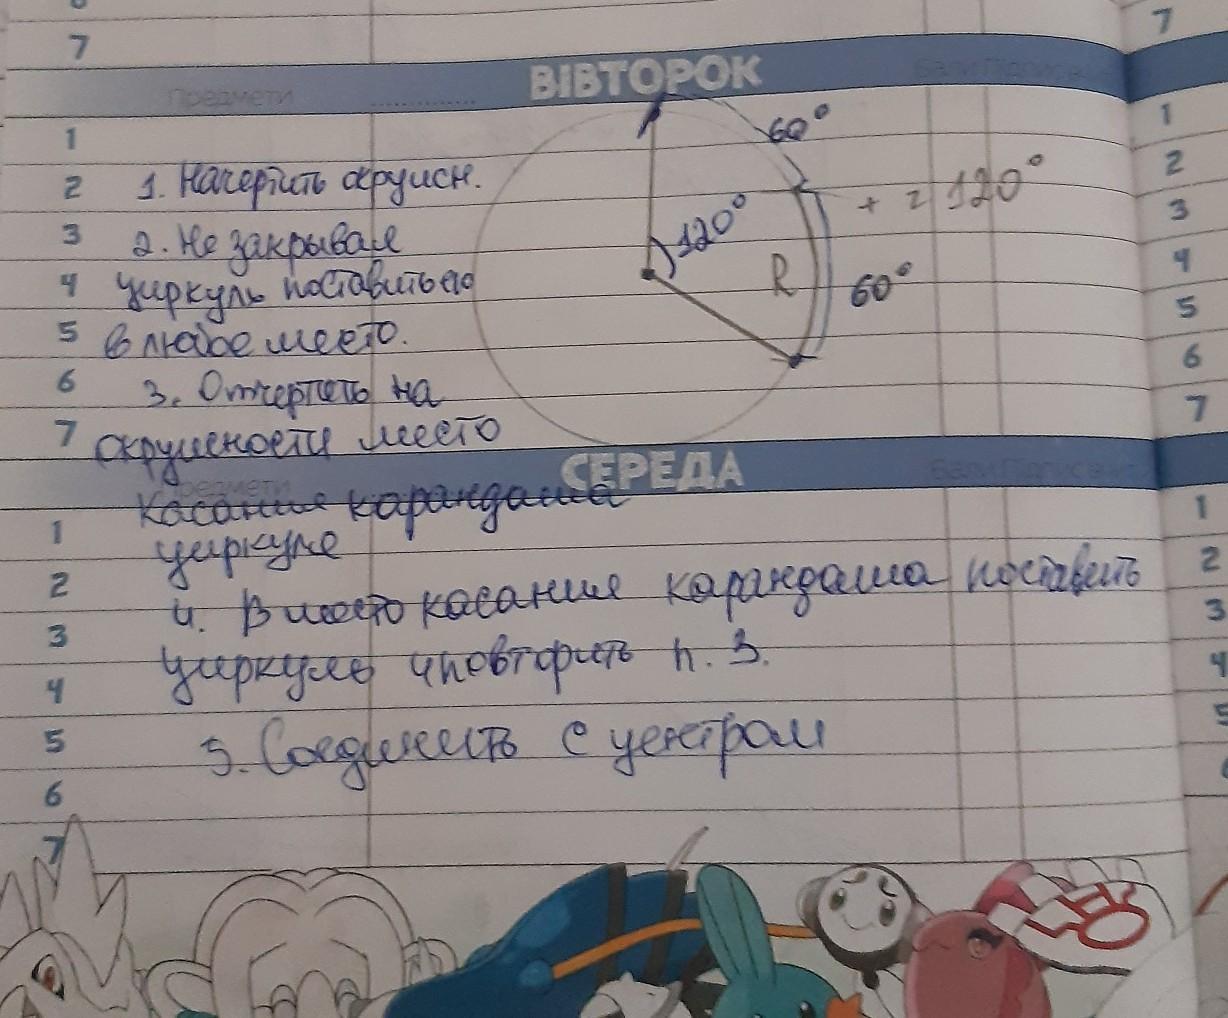 7
7
ВІВТОРОК
Предмети
Бали
1
60°
1
2
1. Начертить окружн.
120°
+ = 120°
2
3
2. Не закрывая
R
60°
3
4
циркуль поставить его
4
5
в любое место.
5
6
3. Отчертить на
6
7
окружности место
7
СЕРЕДА
Предмети
Бали
касания карандаша
1
циркуля
1
2
4. В место касания карандаша поставить
2
3
циркуль и повторить п. 3.
3
4
4
5
5. Соединить с центром
5
6
7